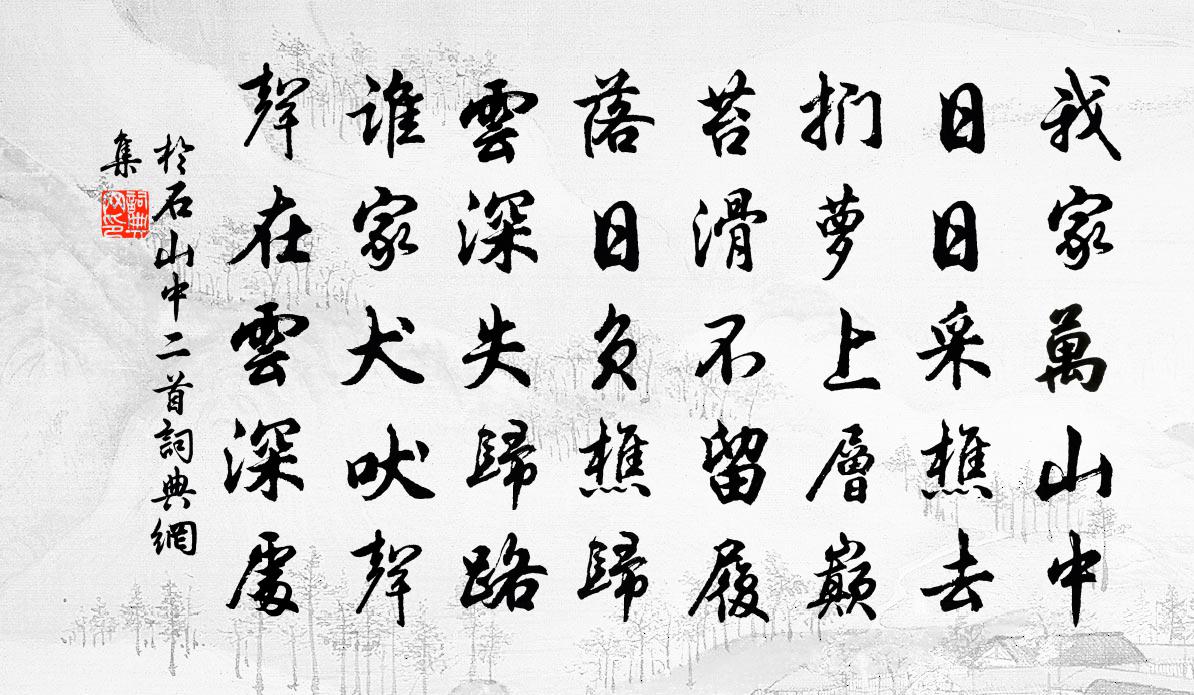 我家萬山中
日日采樵去
捫萝上層巔
苔滑不留履
落日負樵歸
雲深失歸路
誰家犬吠聲
聲在雲深處
於石山中二首詞典網
集
詞典
网印